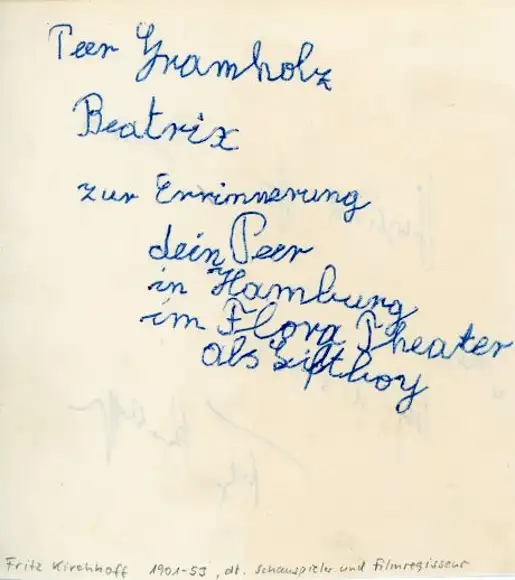 Peer Gramholz
Beatrix
zur Errinnerung
dein Peer
in Hamburg
im Flora Theater
als Liftboy
Fritz Kirchhoff 1901-53, dt. Schauspieler und Filmregisseur